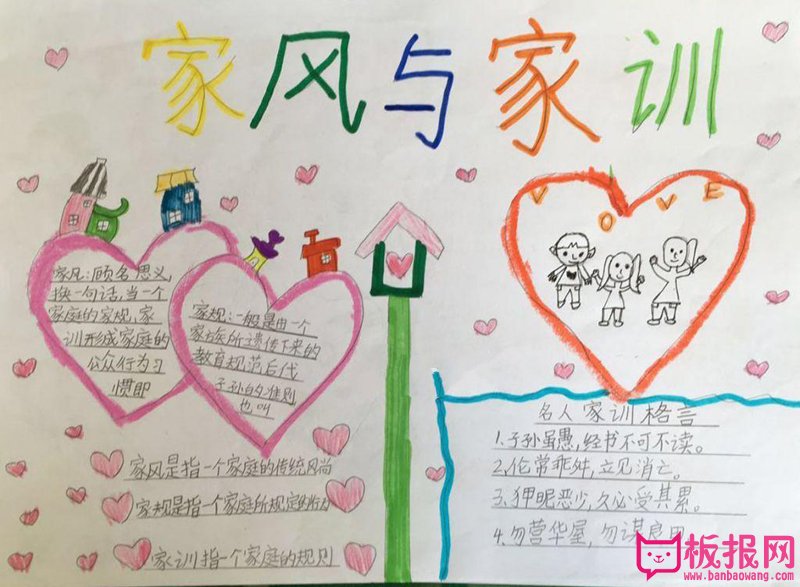 家风与家训
家风:顾名思义,
换一句话,当一个
家庭的家规,家
训形成家庭的
公众行为习
惯即
家规:一般是由一个
家族所遗传下来的
教育规范后代
子孙的准则
也叫
家风是指一个家庭的传统风尚
家规是指一个家庭所规定的行为
家训指一个家庭的规则
VOVE
名人家训格言
1.子孙虽愚,经书不可不读。
2.伦常乖舛,立见消亡。
3.狎昵恶少,久必受其累。
4.勿营华屋,勿谋良田
板报网
www.banbaowang.com